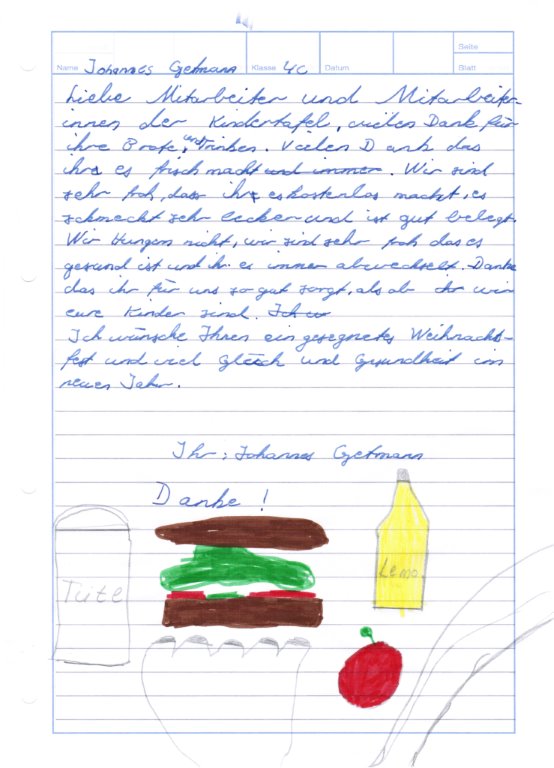 Seite
Name Johannes Getmann Klasse 4c Datum Blatt
Liebe Mitarbeiter und Mitarbeiter-
innen der Kindertafel, vielen Dank für
ihre Brote, und Trinken. Vielen Dank das
ihr es frisch macht und immer. Wir sind
sehr froh, dass ihr es kostenlos macht, es
schmeckt sehr lecker und ist gut belegt.
Wir Hungern nicht, wir sind sehr froh das es
gesund ist und ihr es immer abwechselt. Danke
das ihr für uns so gut sorgt, als ob wir
eure Kinder sind.
Ich wünsche Ihnen ein gesegnetes Weihnachts-
fest und viel Glück und Gesundheit im
neuen Jahr.
Ihr: Johannes Getmann
Danke!
Tüte
Lemo